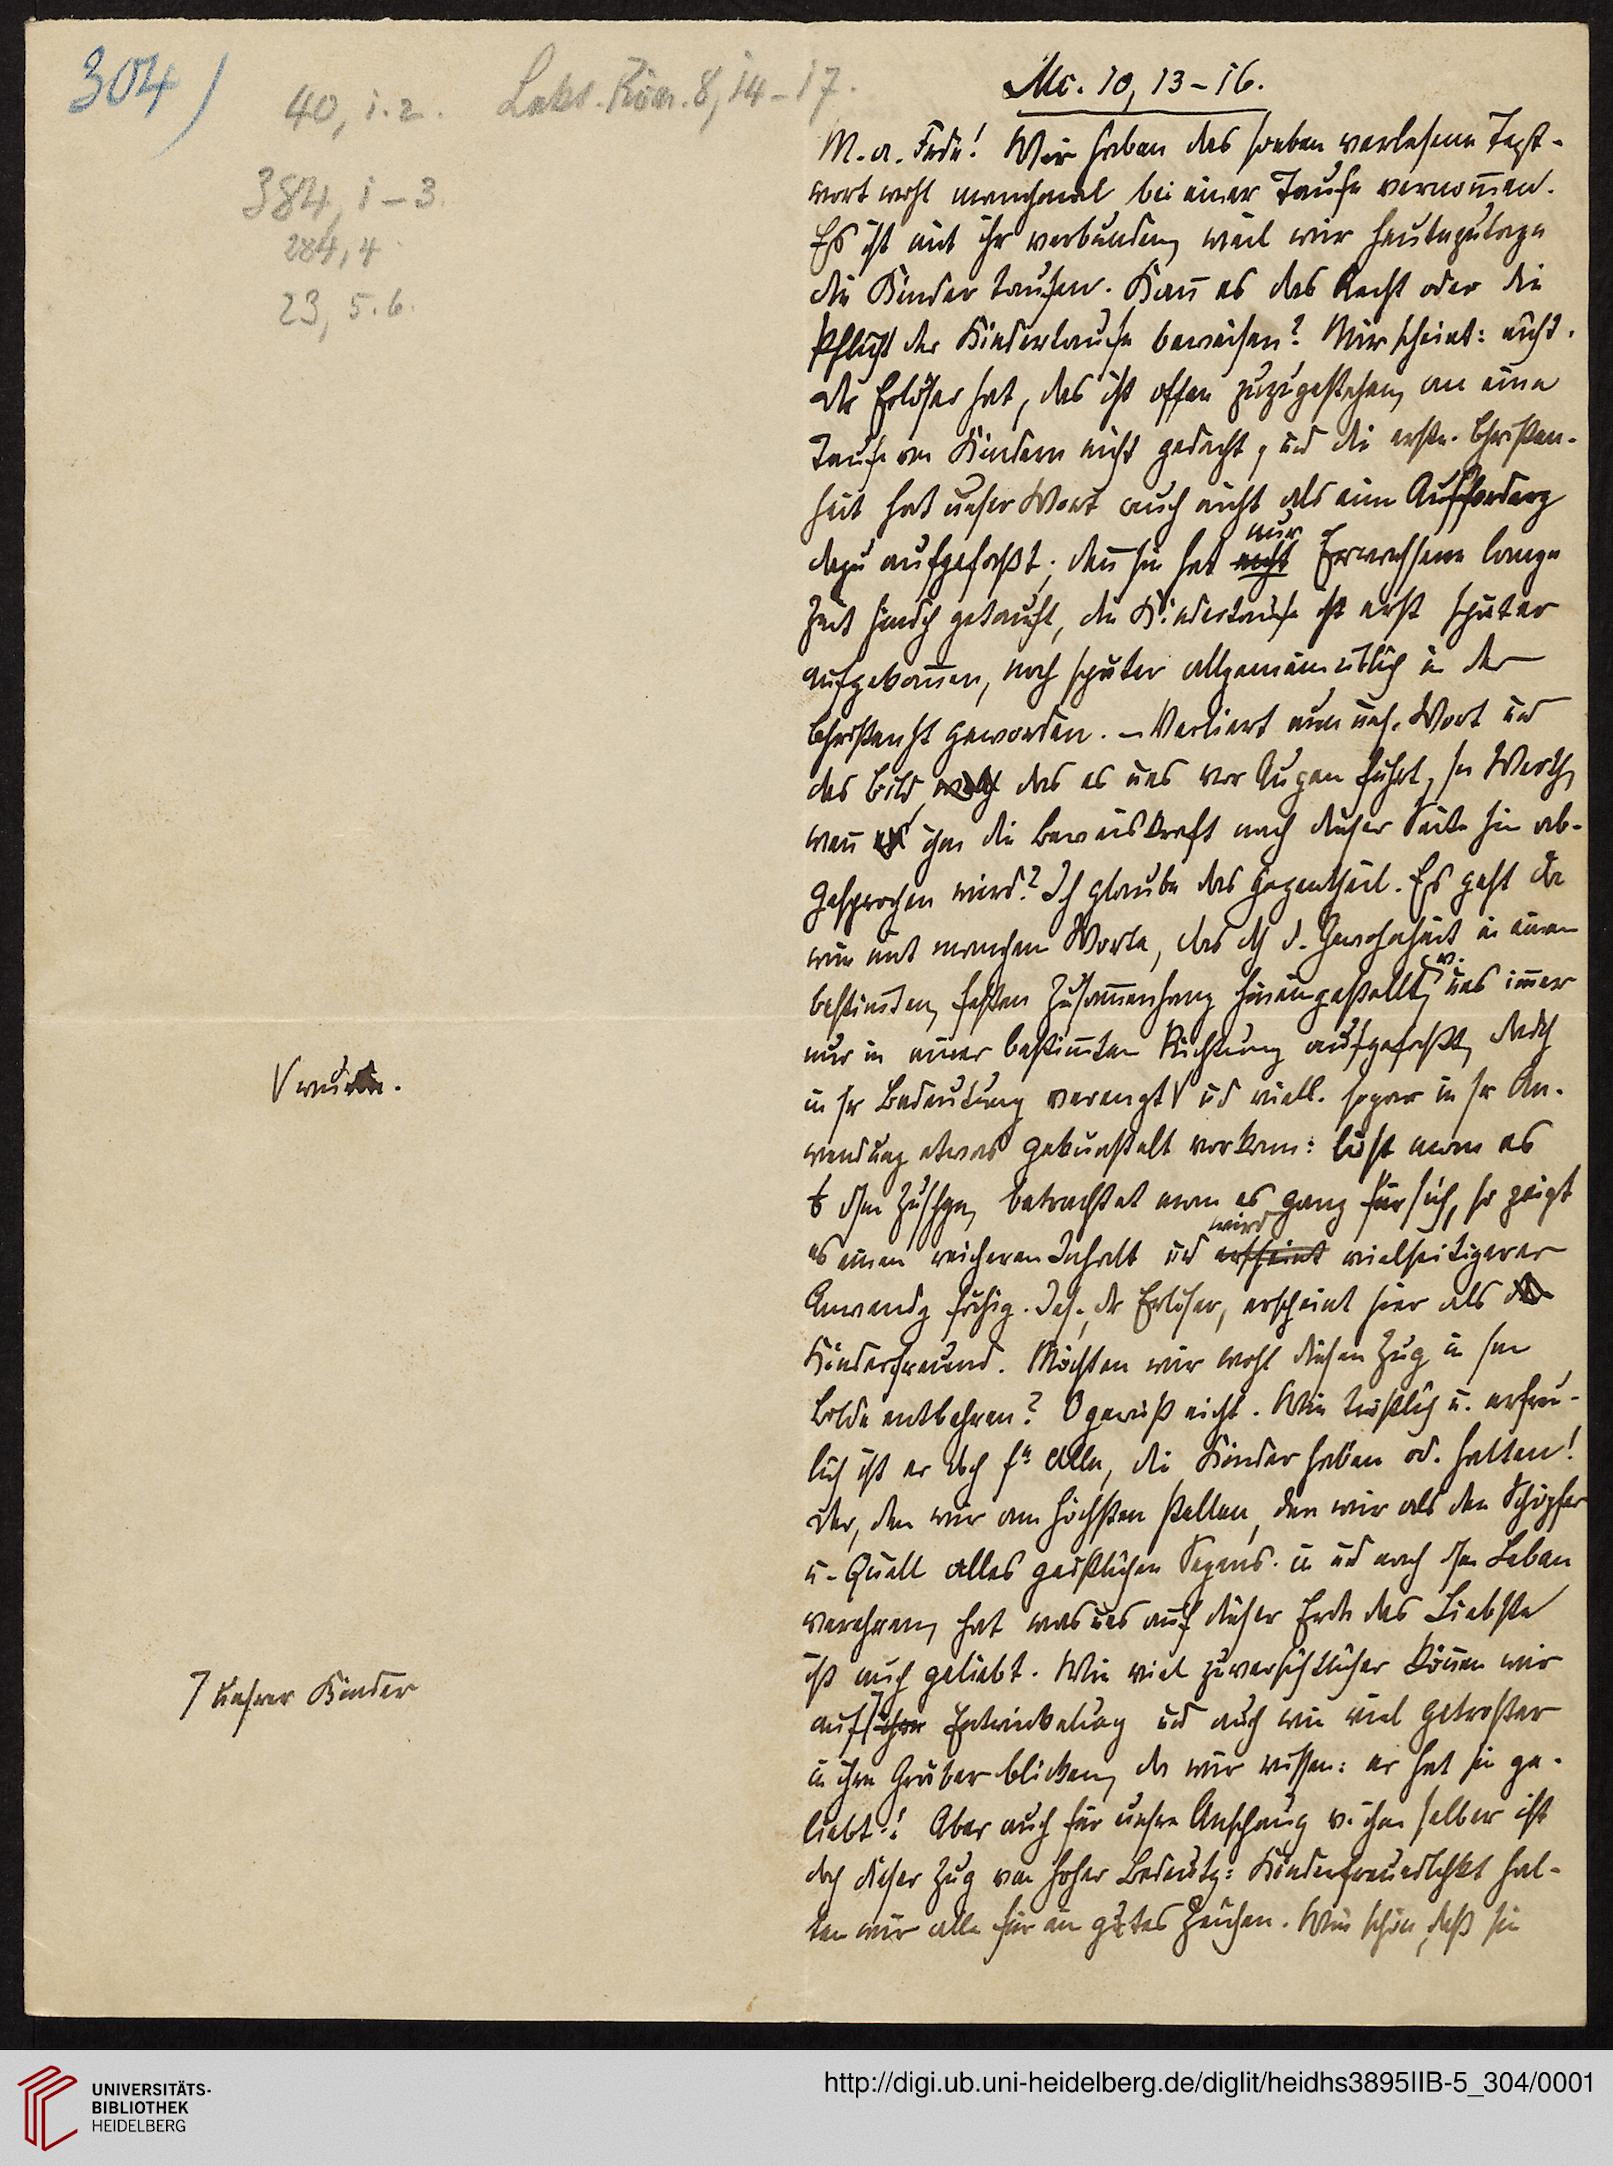 304)
40, 1. 2.
Lekt. Röm. 8, 14-17.
384, 1-3.
284, 4.
23, 5. 6.
Mc. 10, 13-16.
M. a. Frde! Wir haben das soeben verlesene Text-
wort wohl manchmal bei einer Taufe vernom̄en.
Es ist mit ihr verbunden, weil wir heutzutage
die Kinder taufen. Kan̄ es das Recht oder die
Pflicht der Kindertaufe beweisen? Mir scheint: nicht.
Der Erlöser hat, das ist offen zuzugestehen, an eine
Taufe von Kindern nicht gedacht, ud die erste Christen-
heit hat unser Wort auch nicht als eine Aufforderg
dazu aufgefaßt; den̄ sie hat nicht nur Erwachsene lange
Zeit hindch getauft, die Kindertaufe ist erst später
aufgekom̄en, noch später allgemein üblich in der
Christenht geworden. - Verliert nun uns. Wort ud
das Bild, das es uns vor Augen führt, sn Werth,
wen̄ ihm die Beweiskraft nach dieser Seite hin ab-
gesprochen wird? Ich glaube das Gegentheil. Es geht da
wie mit manchem Worte, das dch d. Gewohnheit in einen
bestim̄ten, festen Zusam̄enhang hineingestellt, w. uns im̄er
nur in einer bestim̄ten Richtung aufgefaßt, dadch
in sr Bedeutung verengt V ud viell. sogar in sr An-
V wurde.
wendung etwas gekünstelt vorkam: löst man es
dsm Zushge, betrachtet man es ganz für sich, so zeigt
es einen reicheren Inhalt ud erscheint wird vielseitigerer
Anwendg fähig. Jes., dr Erlöser, erscheint hier als der
Kinderfreund. Möchten wir wohl diesen Zug in sm
Bilde entbehren? O gewiß nicht. Wie tröstlich u. erfreu-
lich ist er doch fr Alle, die Kinder haben od. hatten!
Der, den wir am höchsten stellen, den wir als den Schöpfer
u. Quell alles geistlichen Segens in ud nach dsm Leben
verehren, hat was uns auf dieser Erde das Liebste
ist auch geliebt. Wie viel zuversichtlicher kön̄en wir
auf ihre Entwickelung ud auch wie viel getroster
7 unsrer Kinder
in ihre Gräber blicken, da wir wissen: er hat sie ge-
liebt! Aber auch für unsre Anschaug v. ihm selber ist
doch dieser Zug von hoher Bedeutg: Kinderfreundlichkt hal-
ten wir alle für ein gutes Zeichen. Wie schön, daß sie
UNIVERSITÄTS-
BIBLIOTHEK
HEIDELBERG
http://digi.ub.uni-heidelberg.de/diglit/heidhs3895IIB-5_304/0001